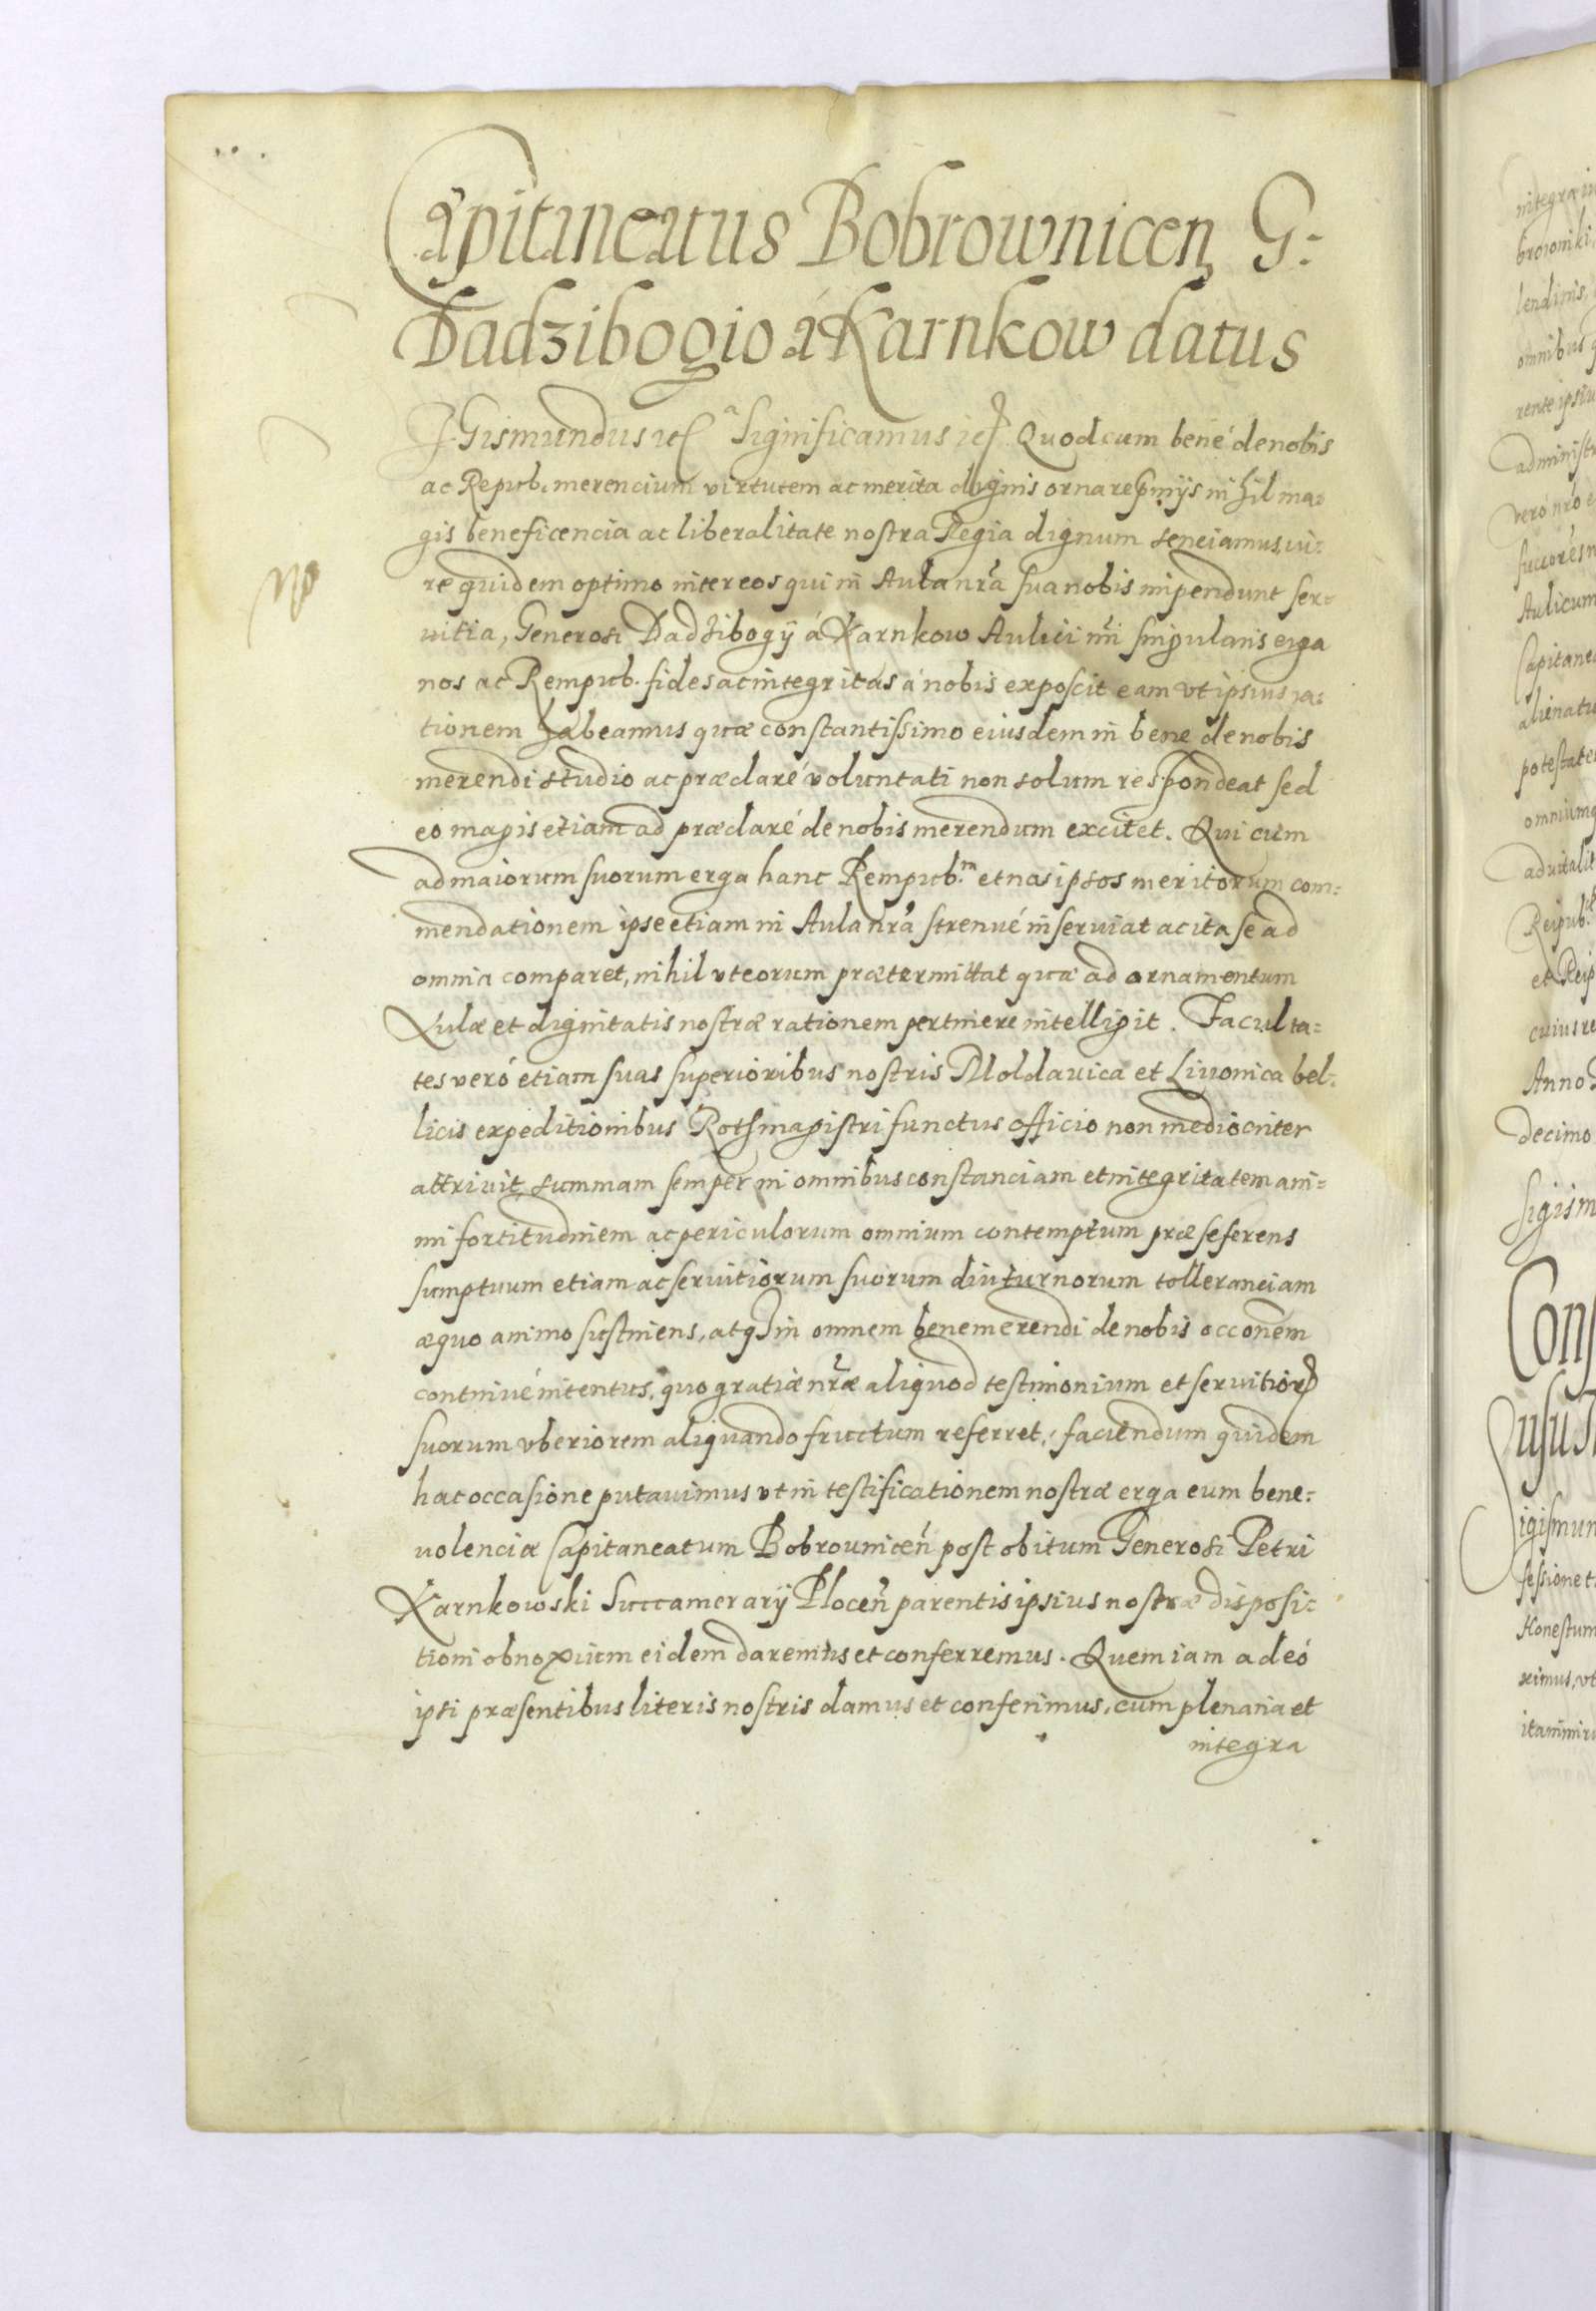 Capitaneatus Bobrownicen G:
Dadzibogio á Karnkow datus
Sigismundus etc Significamus etc Quod cum bené de nobis
ac Repub. merencium virtutem ac merita dignis ornare pmijs nihil ma:
gis beneficencia ac liberalitate nostra Regia dignum senciamus, vi:
re quidem optimo inter eos qui in Aula nrã sua nobis impendunt ser:
uitia, Generosi Dadzibogij á Karnkow Aulici nri singularis erga
nos ac Rempub. fides ac integritas á nobis exposcit eam vt ipsius ra:
tionem habeamus quæ constantissimo eiusdem in bene de nobis
merendi studio ac præclaré voluntati non solum respondeat sed
eo magis etiam ad præclaré de nobis merendum excitet. Qui cum
ad maiorum suorum erga hanc Rempub.m et nos ipsos meritorum com:
mendationem ipse etiam in Aula nrã strenué inseruiat ac ita se ad
omnia comparet, nihil vt eorum prætermittat quæ ad ornamentum
Aulæ et dignitatis nostræ rationem pertinere intelligit. Faculta:
tes veró etiam suas superioribus nostris Moldauica et Liuonica bel:
licis expeditionibus Rothmagistri functus officio non mediocriter
attriuit, summam semper in omnibus constanciam et integritatem ani:
mi fortitudinem ac periculorum omnium contemptum præ se ferens
sumptuum etiam ac seruitiorum suorum diuturnorum tolleranciam
æquo animo sustinens, atq in omnem bene merendi de nobis occonem
continué intentus, quo gratiæ nrãæ aliquod testimonium et seruitior
suorum vberiorem aliquando fructum referret, faciendum quidem
hac occasione putauimus vt in testificationem nostræ erga eum bene:
uolenciæ Capitaneatum Bobrounicen̄ post obitum Generosi Petri
Karnkowski Succamerarij Plocen̄ parentis ipsius nostræ disposi:
tioni obnoxium eidem daremus et conferremus. Quem iam adeó
ipsi præsentibus literis nostris damus et conferimus, cum plenaria et
integra